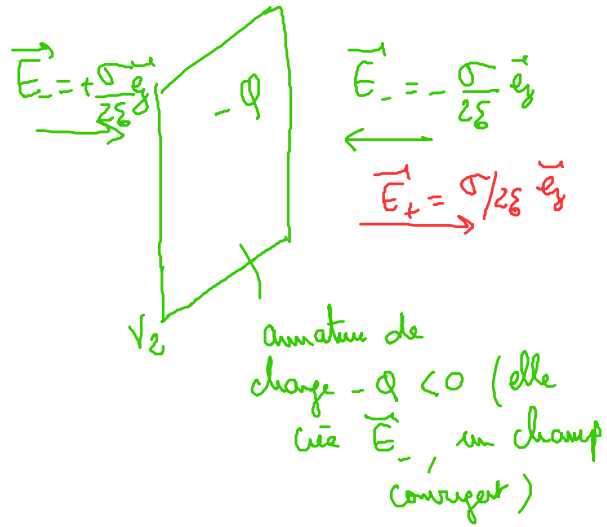 E₋ = + σ/2ε₀ e_z
- Q
E₋ = - σ/2ε₀ e_z
E₊ = σ/2ε₀ e_z
V₂
armature de
charge - Q < 0 (elle
crée E₋, un champ
convergent)